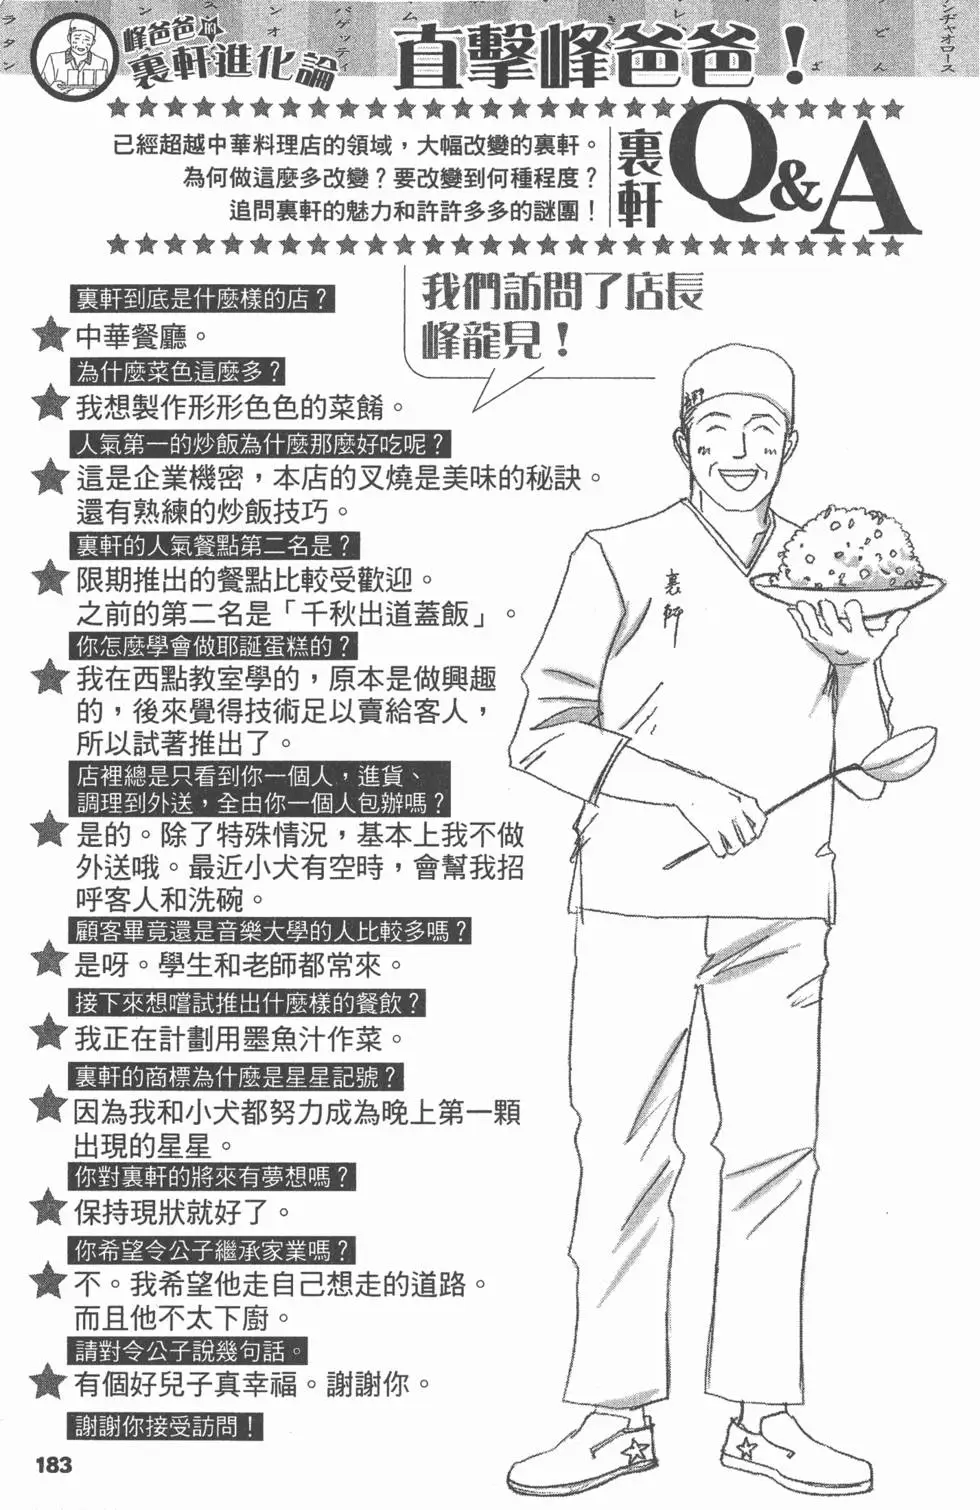 峰爸爸的
裏軒進化論
直擊峰爸爸！
裏軒
Q&A
已經超越中華料理店的領域，大幅改變的裏軒。
為何做這麼多改變？要改變到何種程度？
追問裏軒的魅力和許許多多的謎團！
我們訪問了店長
峰龍見！
裏軒到底是什麼樣的店？
★中華餐廳。
為什麼菜色這麼多？
★我想製作形形色色的菜餚。
人氣第一的炒飯為什麼那麼好吃呢？
★這是企業機密，本店的叉燒是美味的秘訣。
還有熟練的炒飯技巧。
裏軒的人氣餐點第二名是？
★限期推出的餐點比較受歡迎。
之前的第二名是「千秋出道蓋飯」。
你怎麼學會做耶誕蛋糕的？
★我在西點教室學的，原本是做興趣
的，後來覺得技術足以賣給客人，
所以試著推出了。
店裡總是只看到你一個人，進貨、
調理到外送，全由你一個人包辦嗎？
★是的。除了特殊情況，基本上我不做
外送哦。最近小犬有空時，會幫我招
呼客人和洗碗。
顧客畢竟還是音樂大學的人比較多嗎？
★是呀。學生和老師都常來。
接下來想嚐試推出什麼樣的餐飲？
★我正在計劃用墨魚汁作菜。
裏軒的商標為什麼是星星記號？
★因為我和小犬都努力成為晚上第一顆
出現的星星。
你對裏軒的將來有夢想嗎？
★保持現狀就好了。
你希望令公子繼承家業嗎？
★不。我希望他走自己想走的道路。
而且他不太下廚。
請對令公子說幾句話。
★有個好兒子真幸福。謝謝你。
謝謝你接受訪問！
裏軒
183